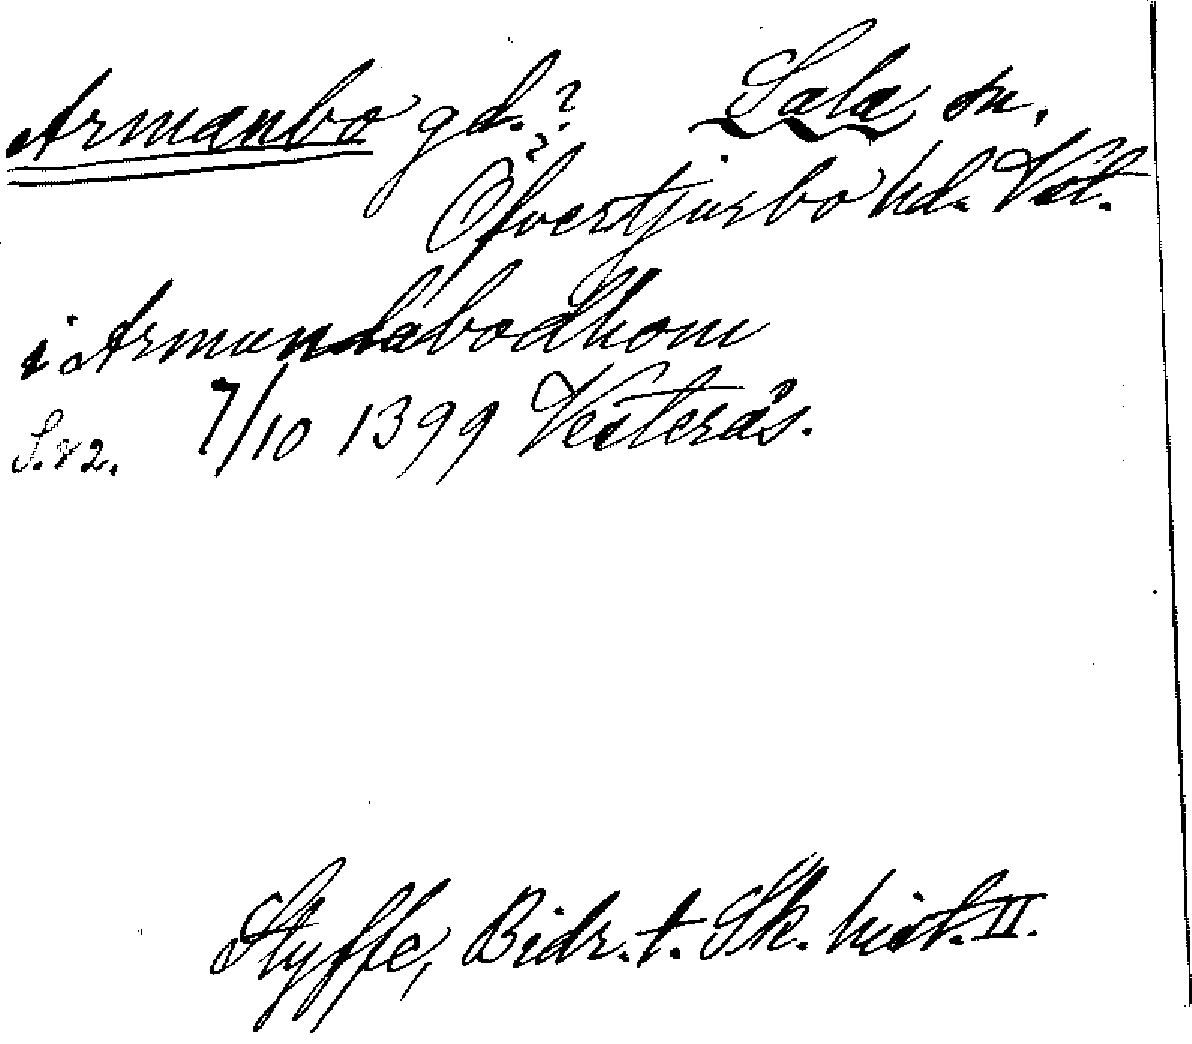 Armanbo gd.? Sala sn.
Öfvertjurbo hd. Vstl.
i Armundabodhom
S. 82. 7/10 1399 Vesterås.
Styffe, Bidr. t. Sk. hist. II.